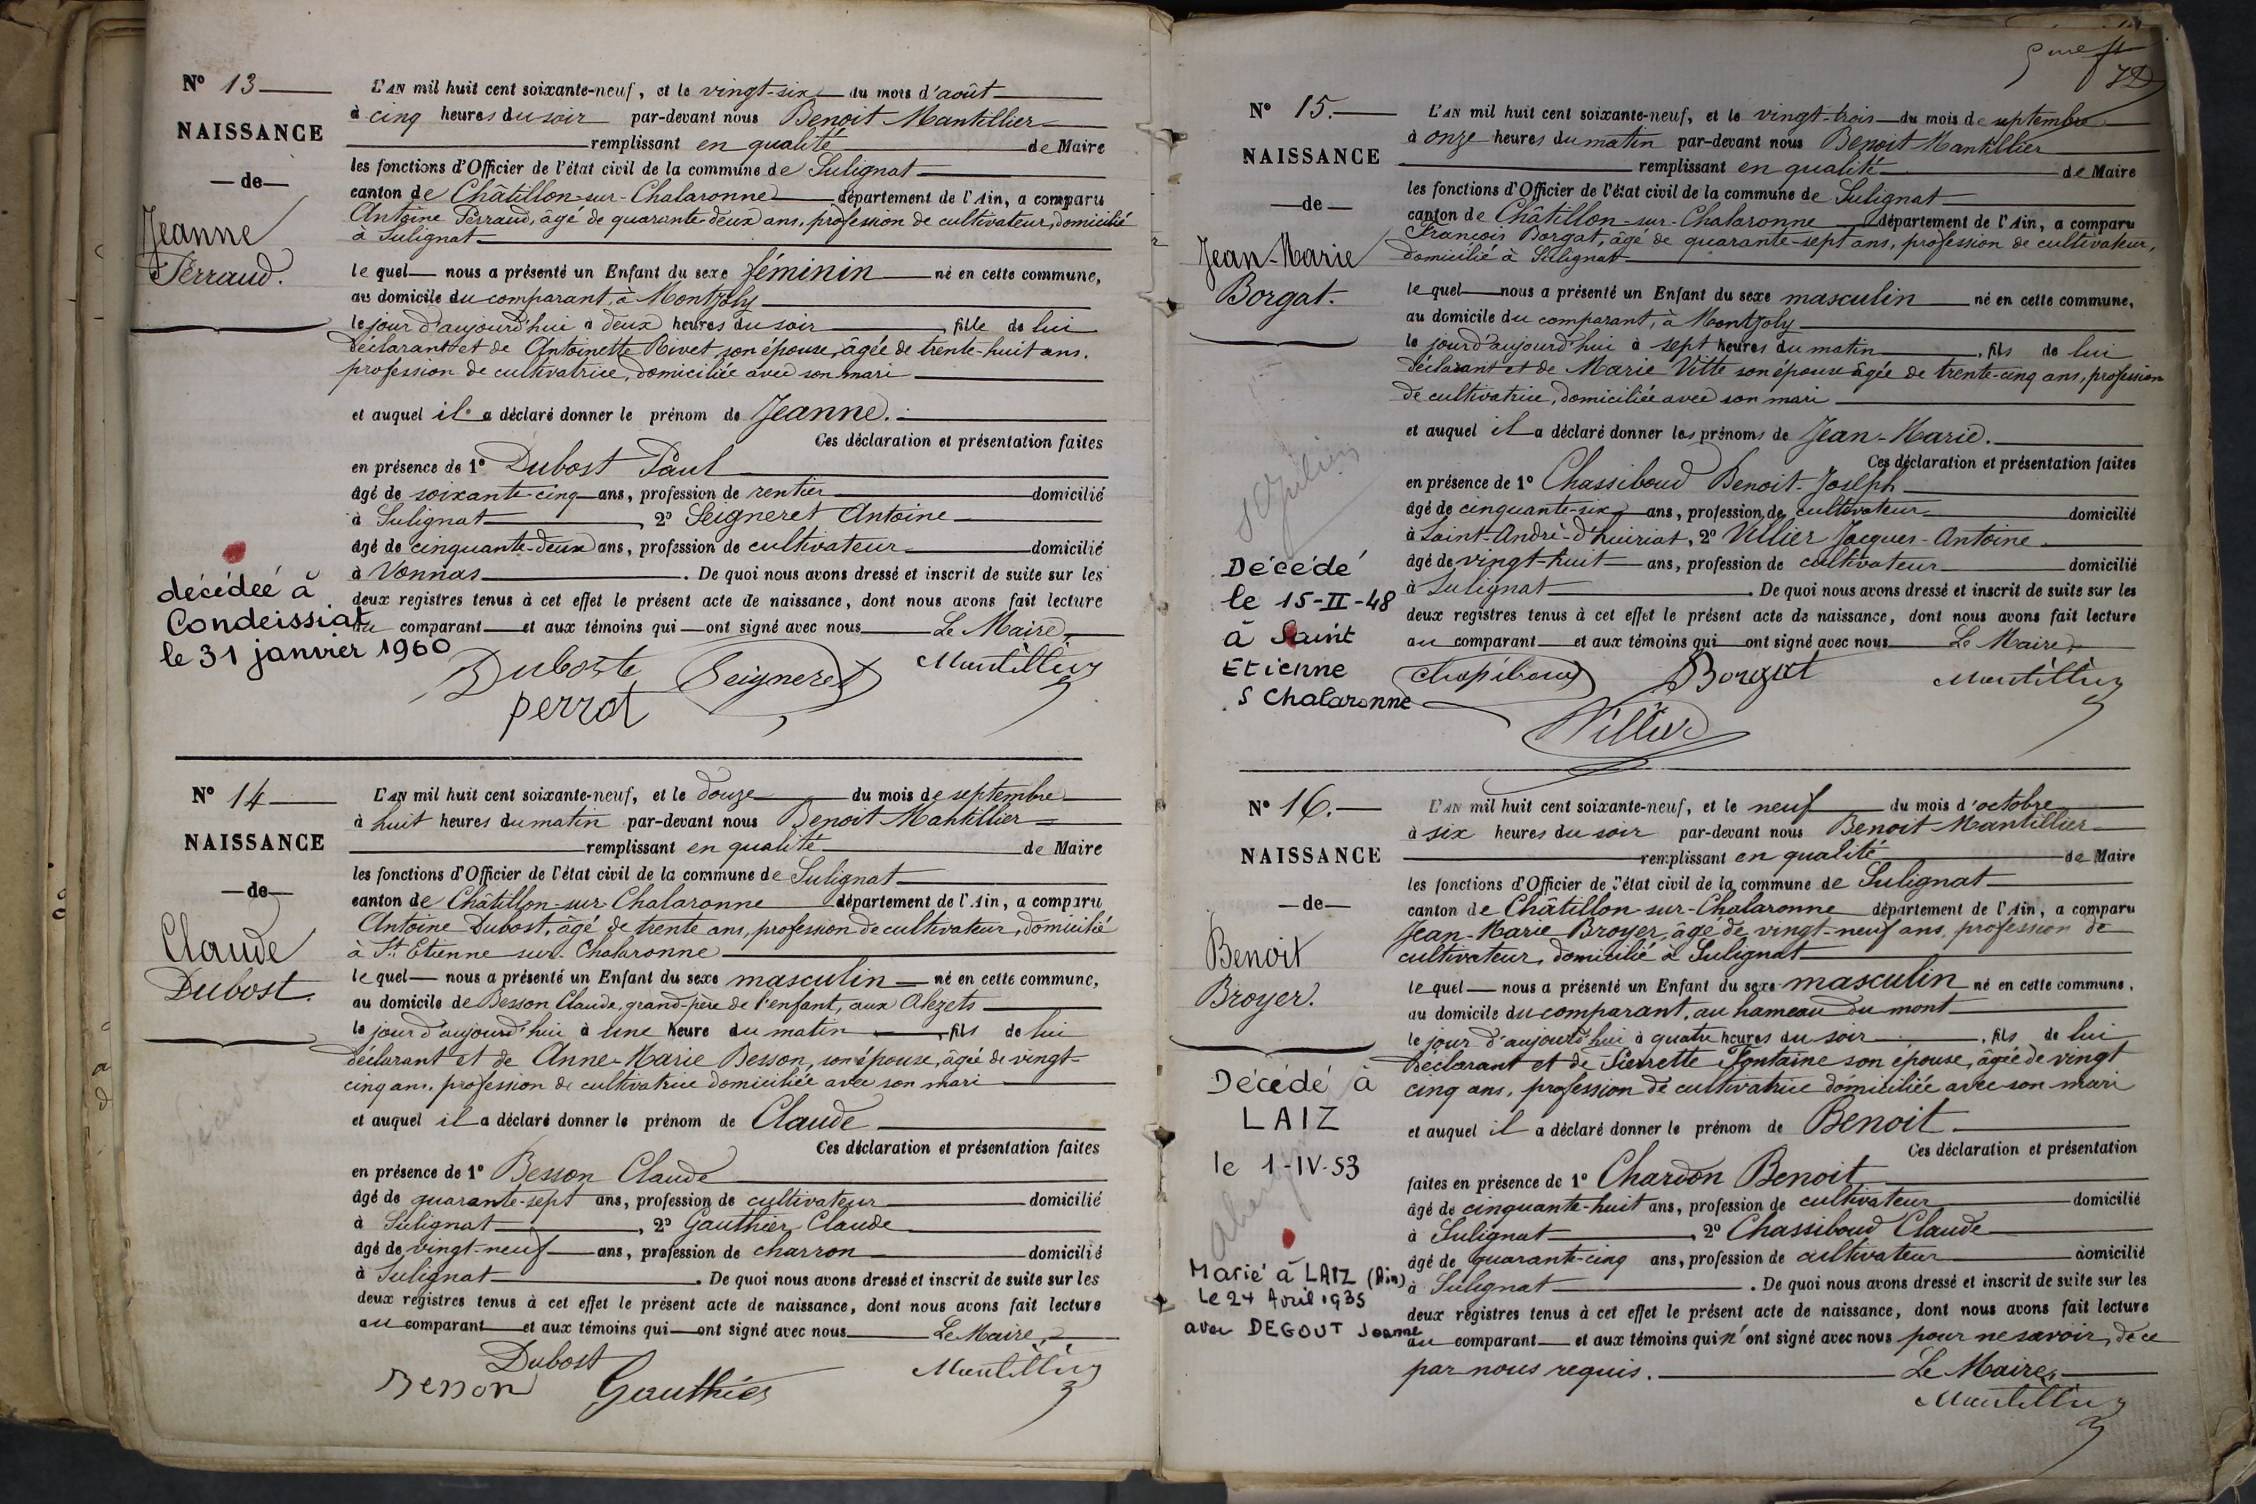 N° 13
NAISSANCE
de
Jeanne
Perraud.
décédée à
Condeissiat
le 31 janvier 1960
L'AN mil huit cent soixante-neuf, et le vingt-six du mois d'août
à cinq heures du soir par-devant nous Benoit Mantillier
remplissant en qualité de Maire
les fonctions d'Officier de l'état civil de la commune de Sulignat
canton de Châtillon-sur-Chalaronne département de l'Ain, a comparu
Antoine Perraud, âgé de quarante-deux ans, profession de cultivateur, domicilié
à Sulignat
le quel nous a présenté un Enfant du sexe féminin né en cette commune,
au domicile du comparant, à Montjoly
le jour d'aujourd'hui à deux heures du soir, fille de lui
déclarant et de Antoinette Rivet son épouse, âgée de trente-huit ans.
profession de cultivatrice, domiciliée avec son mari
et auquel il a déclaré donner le prénom de Jeanne.
Ces déclaration et présentation faites
en présence de 1° Dubost Paul
âgé de soixante-cinq ans, profession de rentier domicilié
à Sulignat, 2° Seigneret Antoine
âgé de cinquante-deux ans, profession de cultivateur domicilié
à Vonnas. De quoi nous avons dressé et inscrit de suite sur les
deux registres tenus à cet effet le présent acte de naissance, dont nous avons fait lecture
au comparant et aux témoins qui ont signé avec nous Le Maire,
Duboste Seigneret Mantillier
perrot
N° 14
NAISSANCE
de
Claude
Dubost.
L'AN mil huit cent soixante-neuf, et le douze du mois de septembre
à huit heures du matin par-devant nous Benoit Mantillier
remplissant en qualité de Maire
les fonctions d'Officier de l'état civil de la commune de Sulignat
canton de Châtillon-sur-Chalaronne département de l'Ain, a comparu
Antoine Dubost, âgé de trente ans, profession de cultivateur, domicilié
à St Etienne sur Chalaronne
le quel nous a présenté un Enfant du sexe masculin né en cette commune,
au domicile de Besson Claude, grand-père de l'enfant, aux Alezets
le jour d'aujourd'hui à une heure du matin, fils de lui
déclarant et de Anne-Marie Besson, son épouse, âgée de vingt-
cinq ans, profession de cultivatrice domiciliée avec son mari
et auquel il a déclaré donner le prénom de Claude
Ces déclaration et présentation faites
en présence de 1° Besson Claude
âgé de quarante-sept ans, profession de cultivateur domicilié
à Sulignat, 2° Gauthier Claude
âgé de vingt-neuf ans, profession de charron domicilié
à Sulignat. De quoi nous avons dressé et inscrit de suite sur les
deux registres tenus à cet effet le présent acte de naissance, dont nous avons fait lecture
au comparant et aux témoins qui ont signé avec nous Le Maire,
Dubost Mantillier
Besson Gauthier
N° 15.
NAISSANCE
de
Jean-Marie
Borgat.
St Julien
Décédé
le 15-II-48
à Saint
Etienne
S Chalaronne
L'AN mil huit cent soixante-neuf, et le vingt-trois du mois de septembre
à onze heures du matin par-devant nous Benoit Mantillier
remplissant en qualité de Maire
les fonctions d'Officier de l'état civil de la commune de Sulignat
canton de Châtillon-sur-Chalaronne département de l'Ain, a comparu
François Borgat, âgé de quarante-sept ans, profession de cultivateur,
domicilié à Sulignat
le quel nous a présenté un Enfant du sexe masculin né en cette commune,
au domicile du comparant, à Montjoly
le jour d'aujourd'hui à sept heures du matin, fils de lui
déclarant et de Marie Vitte son épouse âgée de trente-cinq ans, profession
de cultivatrice, domiciliée avec son mari
et auquel il a déclaré donner les prénoms de Jean-Marie.
Ces déclaration et présentation faites
en présence de 1° Chassiboud Benoit-Joseph
âgé de cinquante-six ans, profession de cultivateur domicilié
à Saint-André-d'huiriat, 2° Villier Jacques-Antoine
âgé de vingt-huit ans, profession de cultivateur domicilié
à Sulignat. De quoi nous avons dressé et inscrit de suite sur les
deux registres tenus à cet effet le présent acte de naissance, dont nous avons fait lecture
au comparant et aux témoins qui ont signé avec nous Le Maire,
Chassiboud Borgat Mantillier
Villier
N° 16.
NAISSANCE
de
Benoit
Broyer.
Décédé à
LAIZ
le 1-IV-53
Marié à LAIZ (Ain)
Le 24 Avril 1935
avec DEGOUT Jeanne
L'AN mil huit cent soixante-neuf, et le neuf du mois d'octobre
à six heures du soir par-devant nous Benoit Mantillier
remplissant en qualité de Maire
les fonctions d'Officier de l'état civil de la commune de Sulignat
canton de Châtillon-sur-Chalaronne département de l'Ain, a comparu
Jean-Marie Broyer, âgé de vingt-neuf ans, profession de
cultivateur, domicilié à Sulignat
le quel nous a présenté un Enfant du sexe masculin né en cette commune.
au domicile du comparant, au hameau du mont
le jour d'aujourd'hui à quatre heures du soir, fils de lui
déclarant et de Pierrette Fontaine son épouse, âgée de vingt
cinq ans, profession de cultivatrice domiciliée avec son mari
et auquel il a déclaré donner le prénom de Benoit
Ces déclaration et présentation
faites en présence de 1° Chardon Benoit
âgé de cinquante-huit ans, profession de cultivateur domicilié
à Sulignat, 2° Chassiboud Claude
âgé de quarante-cinq ans, profession de cultivateur domicilié
à Sulignat. De quoi nous avons dressé et inscrit de suite sur les
deux registres tenus à cet effet le présent acte de naissance, dont nous avons fait lecture
au comparant et aux témoins qui n'ont signé avec nous pour ne savoir, de ce
par nous requis. Le Maire,
Mantillier